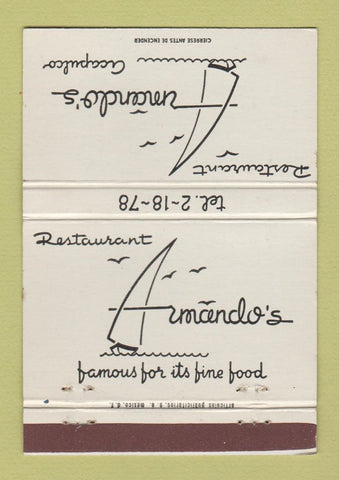 CIERRESE ANTES DE ENCENDER
Acapulco
Armando's
Restaurant
tel. 2-18-78
Restaurant
Armando's
famous for its fine food
articulos publicitarios, s. a. mexico, d. f.